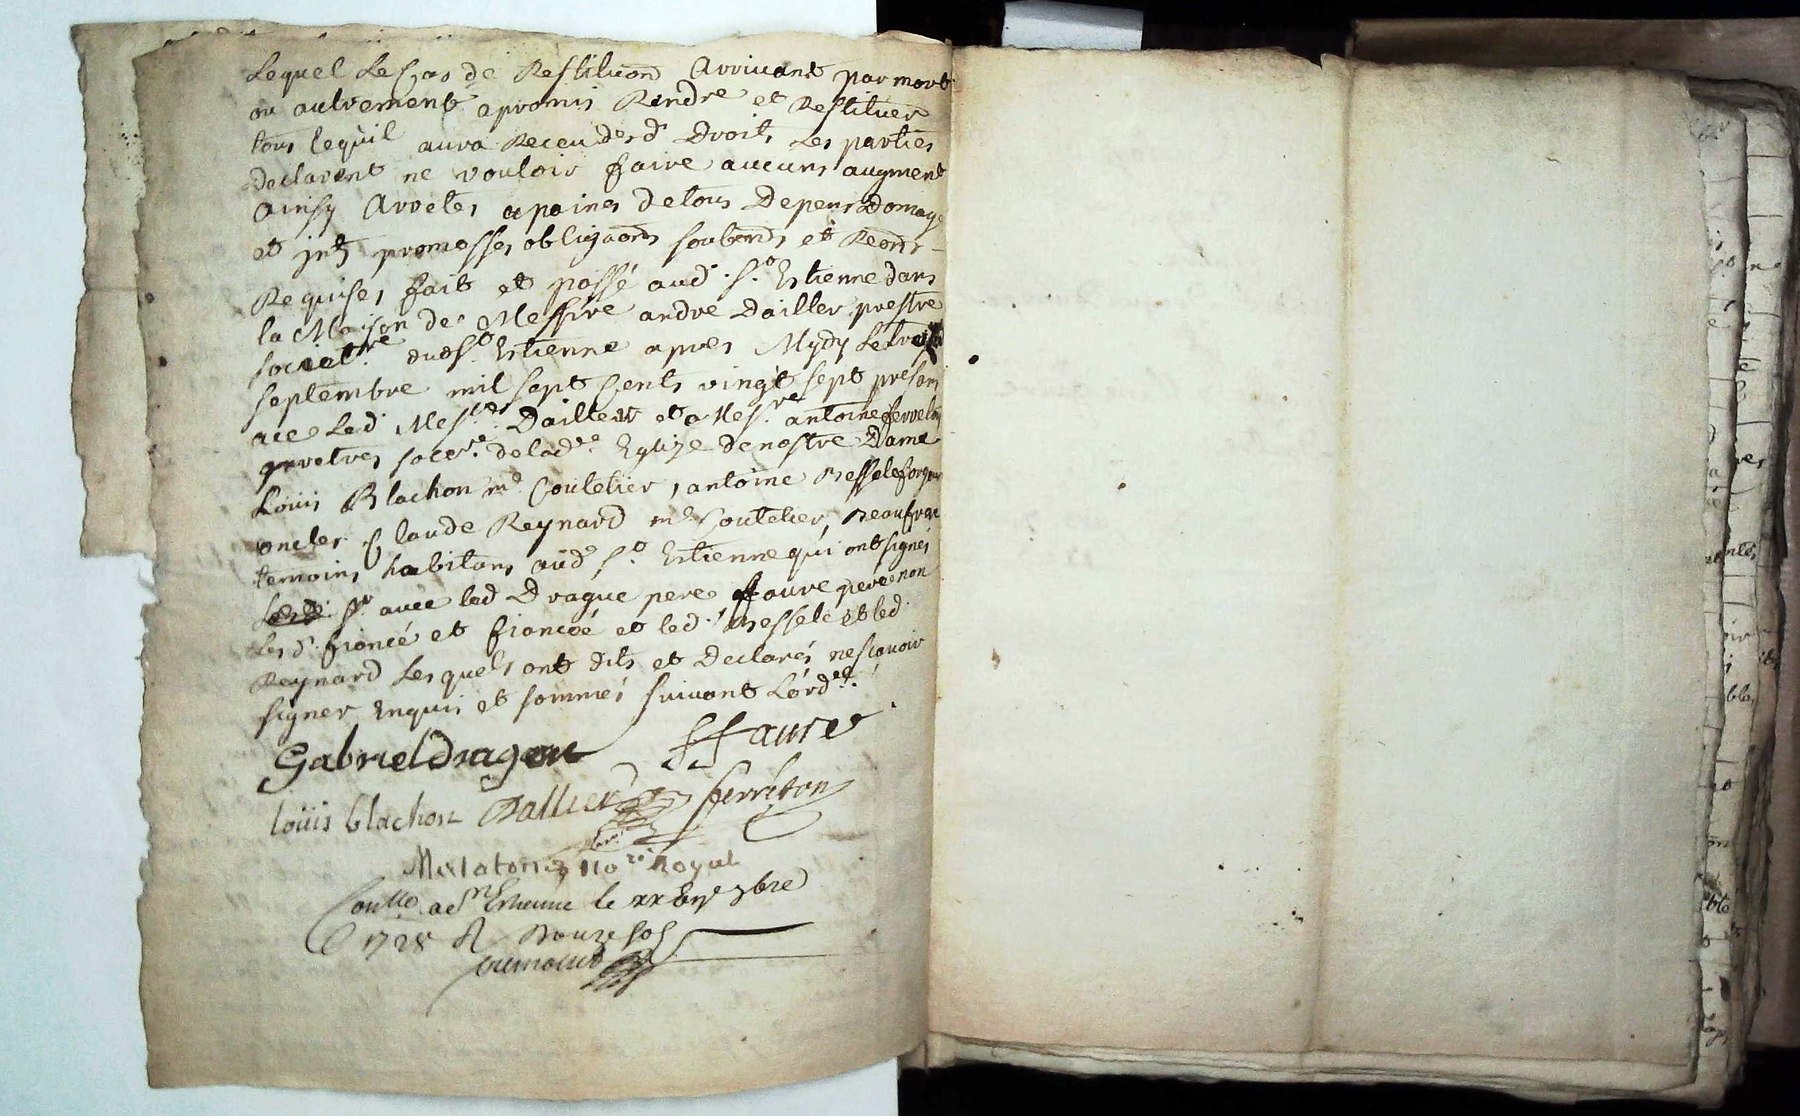 Lequel Le Cas de Restituon Arrivant par mort
ou autrement a promis Rendre et Restituer
tous lequil aura Receu desd. Droits Les parties
declarent ne vouloir faire aucuns augment
Ainsy Arretes a paines de tous Depens Domage
et jnts promesses obligaons soubons et Reons
Requises fait et passé aud. St. Estienne dans
la Maison de Messire andre Dailler prestre
societre. dud St Estienne apres Mydy Le
septembre mil sept Cents vingt sept presans
ace Led. Messre. Dailler et Messre antoine ferreton
pretres socre. de lade. Eglize de nostre Dame
Louis Blachon md Coutelier, antoine Bessele forgeur
oncles Claude Reynard md Coutelier, Beaufrere
temoins habitans aud St. Estienne qui ont signés
avec led Drague pere ffaure pere non
Les d. fiancé et fiancéé et led. Bessele et led.
Reynard Lesquels ont dits et Declarés ne scavoir
signer Enquis et sommés suivant L'ordce.
Gabriel dragou ffaure
loüis blachon Dallier ferréton
nore Royal
Contllé a St Estienne le 7bre
1728 R Douze sols